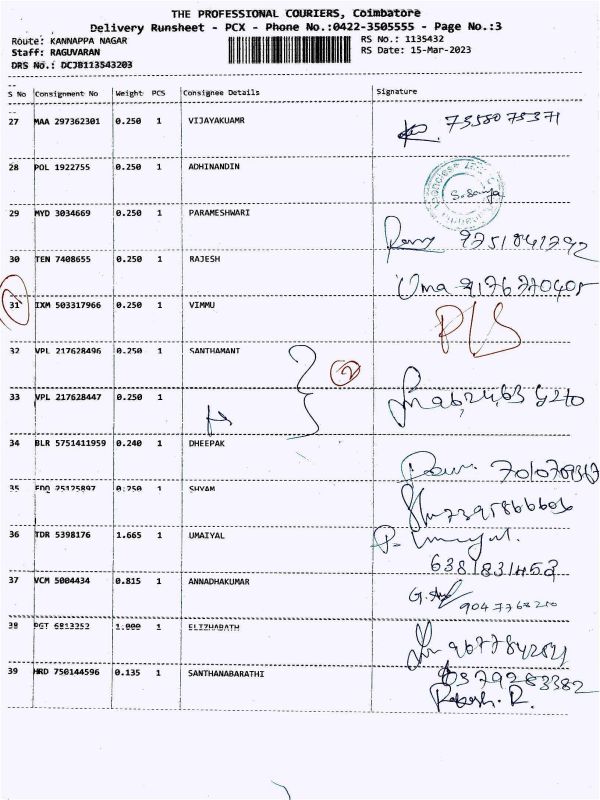 THE PROFESSIONAL COURIERS, Coimbatore
Delivery Runsheet - PCX - Phone No.:0422-3505555 - Page No.:3
Route: KANNAPPA NAGAR RS No.: 1135432
Staff: RAGUVARAN RS Date: 15-Mar-2023
DRS No.: DCJB113543203
S No Consignment No Weight PCS Consignee Details Signature
27 MAA 297362301 0.250 1 VIJAYAKUAMR 7358075371
28 POL 1922755 0.250 1 ADHINANDIN
29 MYD 3034669 0.250 1 PARAMESHWARI 9751841792
30 TEN 7408655 0.250 1 RAJESH Uma 9176770405
31 IXM 503317966 0.250 1 VIMMU
32 VPL 217628496 0.250 1 SANTHAMANT 2
33 VPL 217628447 0.250 1
34 BLR 5751411959 0.240 1 DHEEPAK
35 EDQ 25125897 0.250 1 SHYAM
36 TDR 5398176 1.665 1 UMAIYAL
37 VCM 5004434 0.815 1 ANNADHAKUMAR
38 PGT 6813252 1.000 1 ELIZHABATH
39 HRD 750144596 0.135 1 SANTHANABARATHI